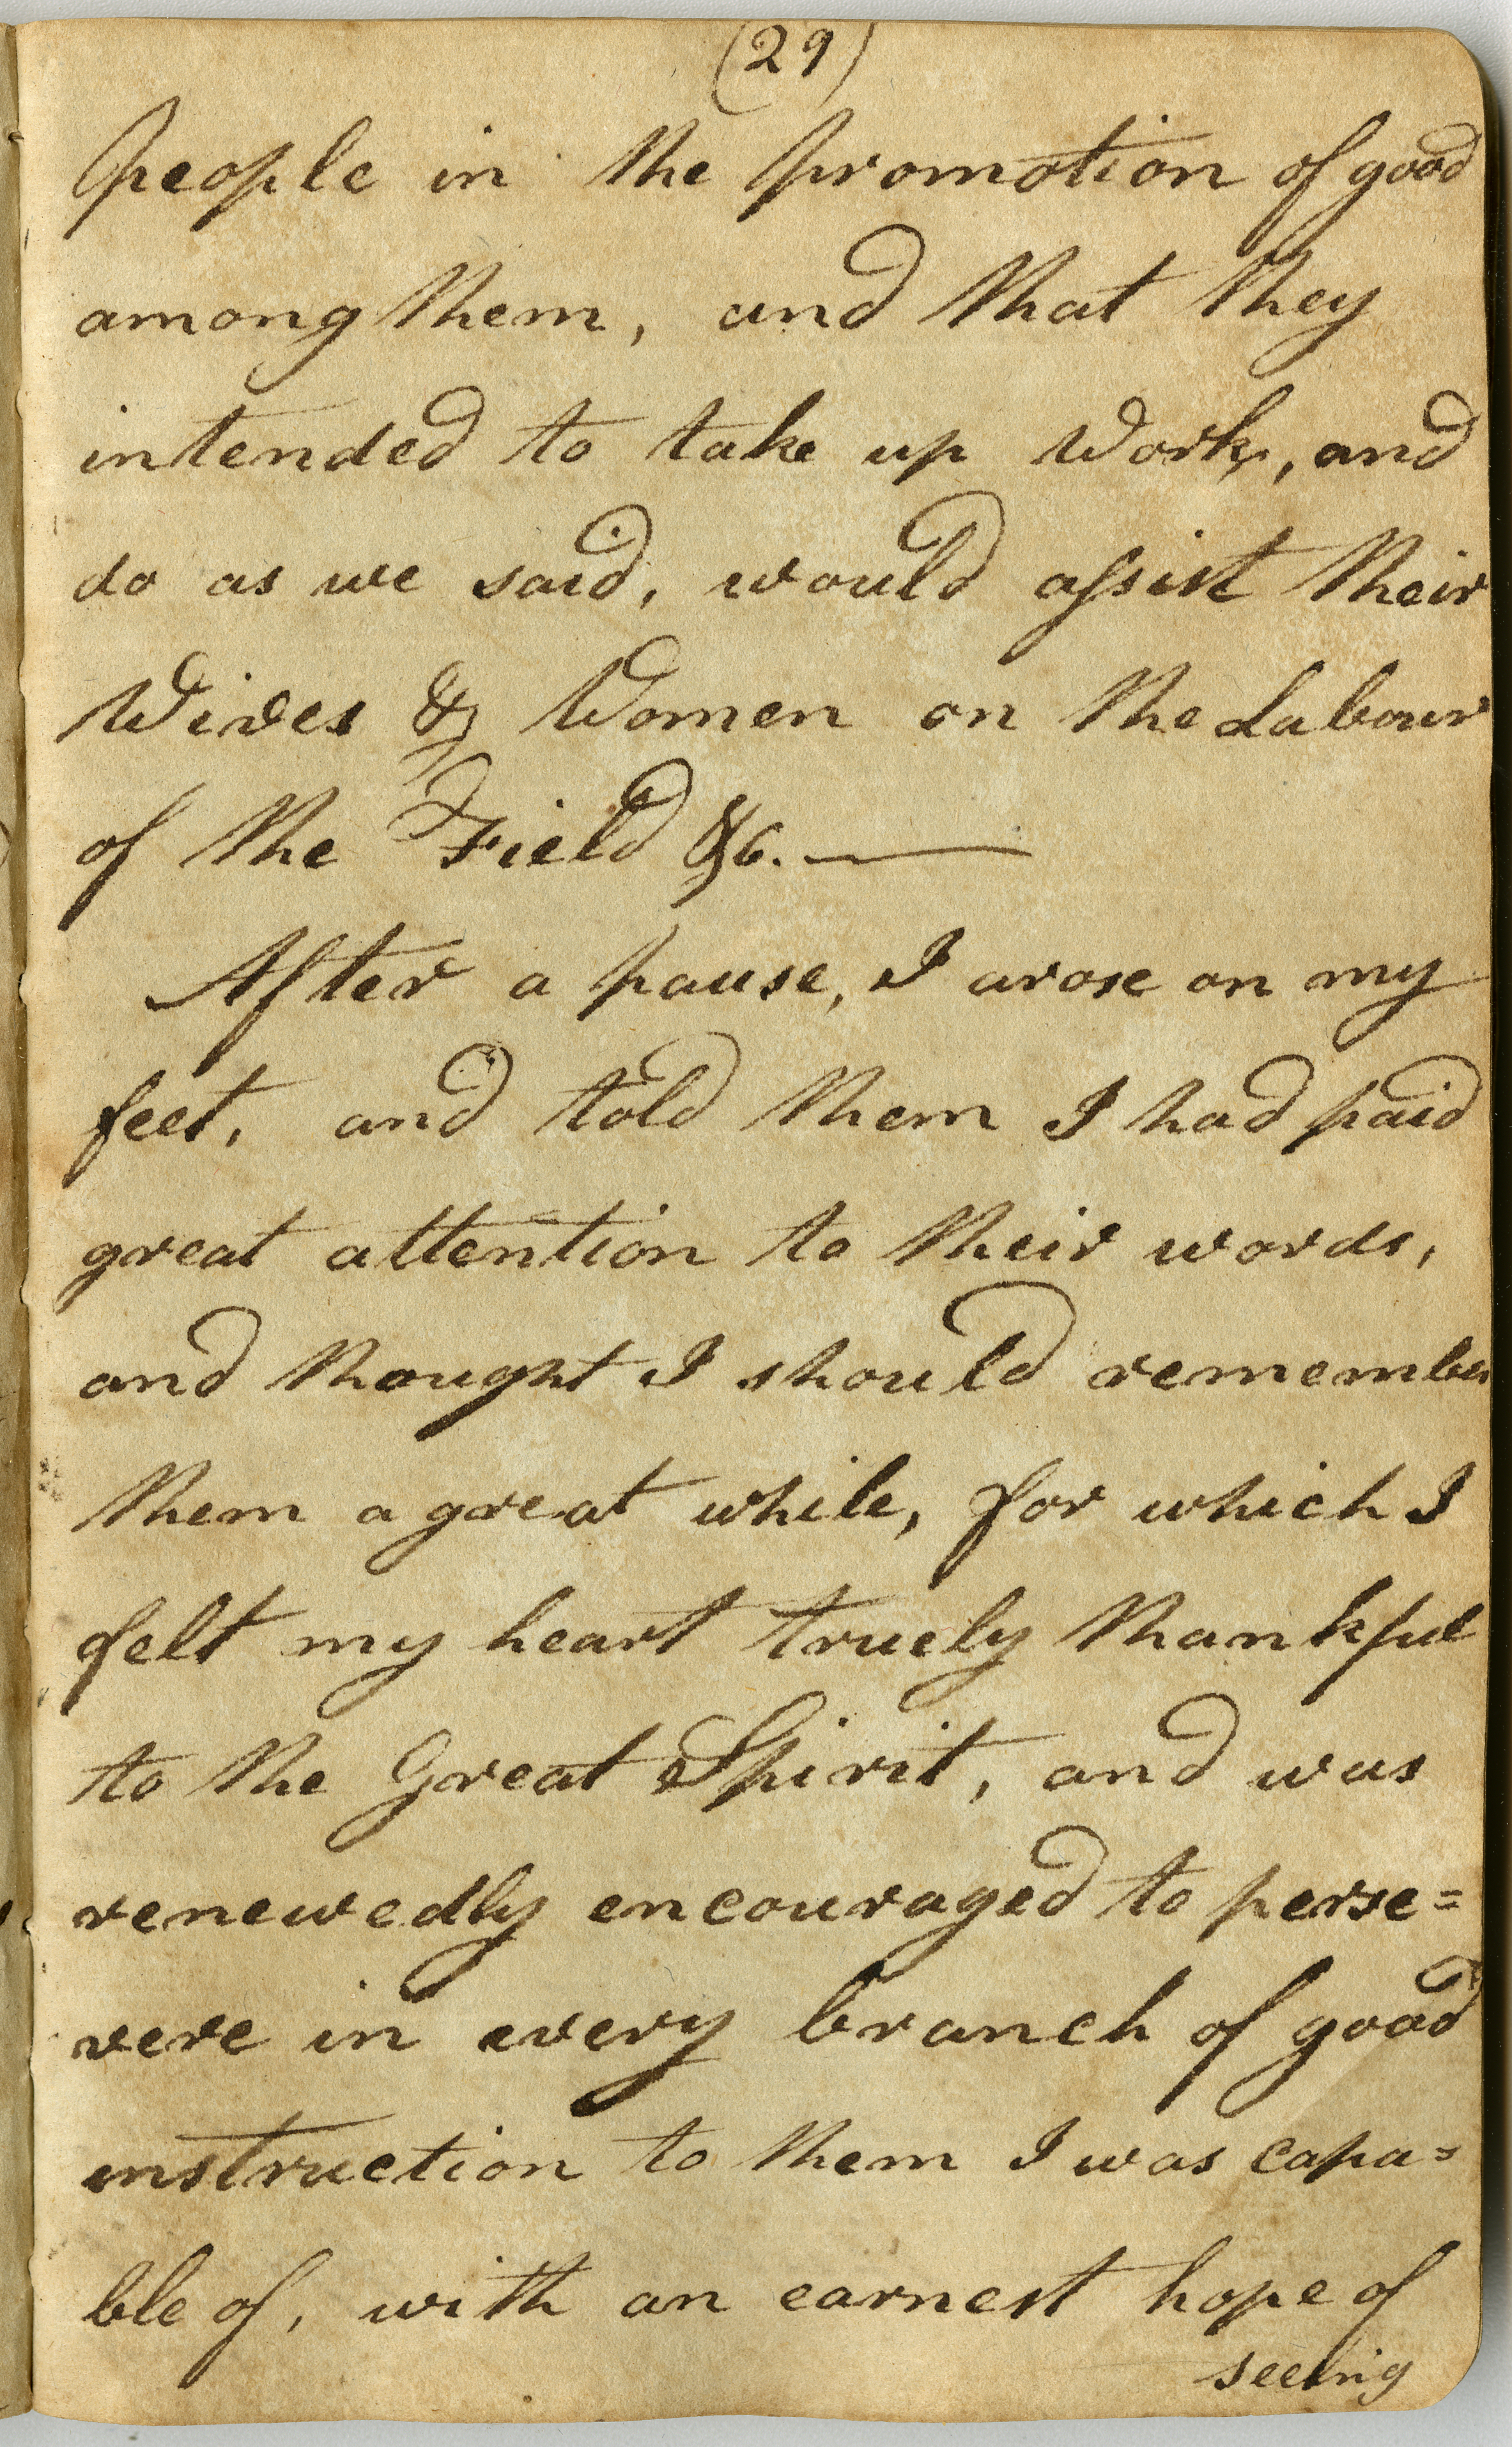 (29)
people in the promotion of good
among them, and that they
intended to take up Work, and
do as we said, would assist their
Wives & Women on the Labour
of the Field &c. —
After a pause, I arose on my
feet, and told them I had paid
great attention to their words,
and thought I should remember
them a great while, for which I
felt my heart truely thankful
to the Great Spirit, and was
renewedly encouraged to perse=
vere in every branch of good
instruction to them I was capa=
ble of, with an earnest hope of
seeing